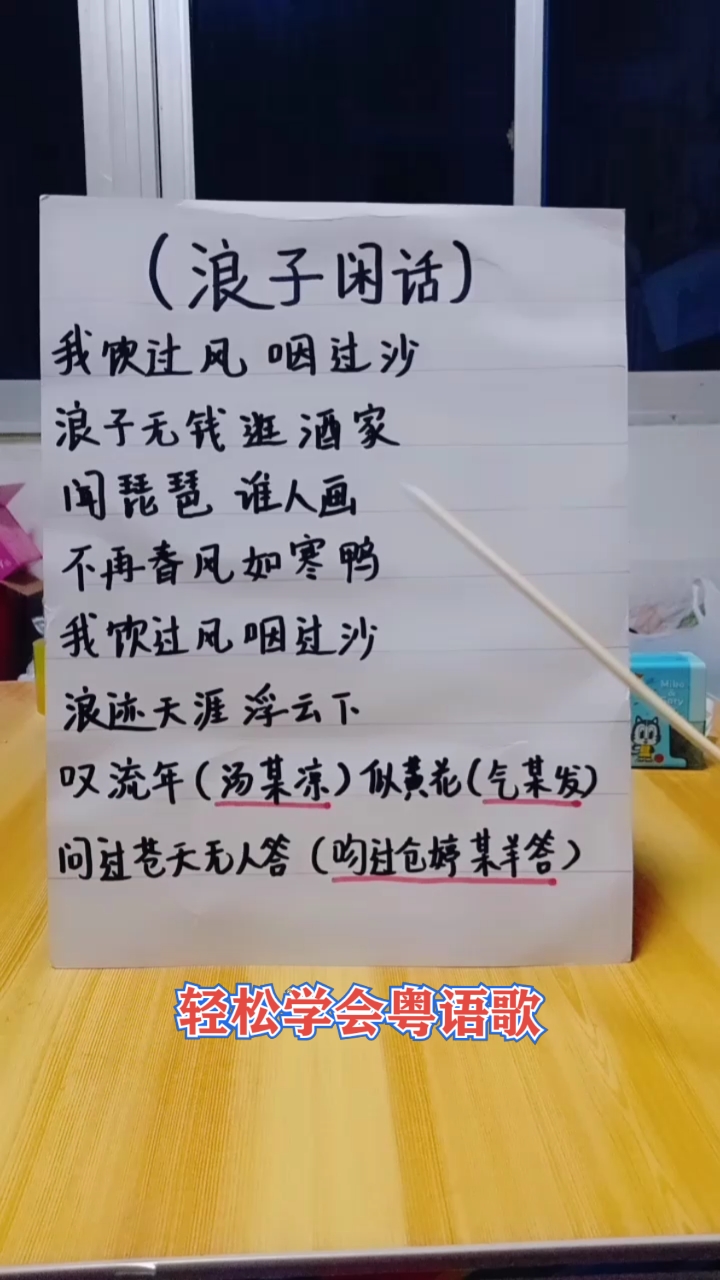 （浪子闲话）
我饮过风 咽过沙
浪子无钱逛酒家
闻琵琶 谁人画
不再春风如寒鸭
我饮过风咽过沙
浪迹天涯浮云下
叹流年（汤某凉）似黄花（乞某发）
问过苍天无人答（吻过仓婷某羊答）
轻松学会粤语歌